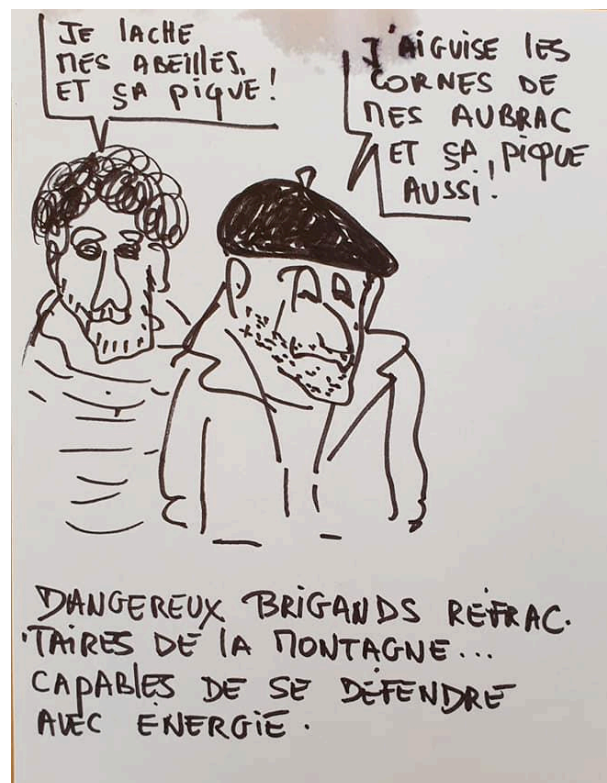 JE LACHE
MES ABEILLES,
ET ÇA PIQUE !
J'AIGUISE LES
CORNES DE
MES AUBRAC
ET ÇA, PIQUE
AUSSI !
DANGEREUX BRIGANDS RÉFRAC-
TAIRES DE LA MONTAGNE...
CAPABLES DE SE DÉFENDRE
AVEC ÉNERGIE.